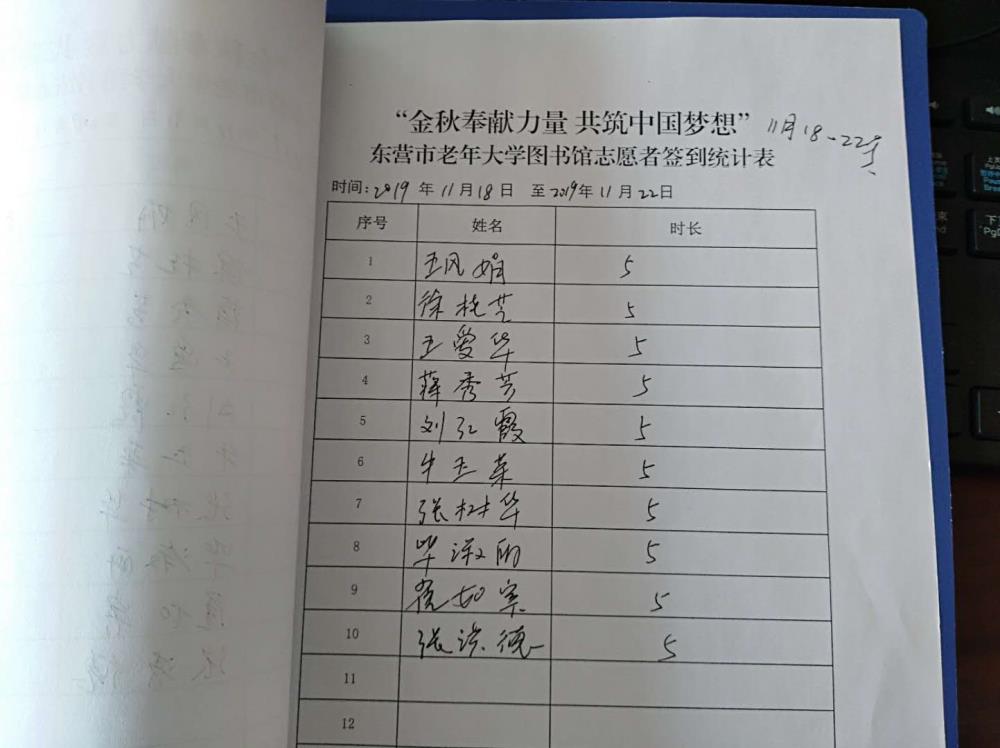 “金秋奉献力量 共筑中国梦想” 11月18-22
东营市老年大学图书馆志愿者签到统计表
时间：2019 年 11月18日 至2019年11月22日
序号 姓名 时长
1 王凤娟 5
2 徐桂芝 5
3 王爱华 5
4 蒋秀芳 5
5 刘红霞 5
6 牛玉荣 5
7 张树华 5
8 毕淑 5
9 5
10 张洪德 5
11
12